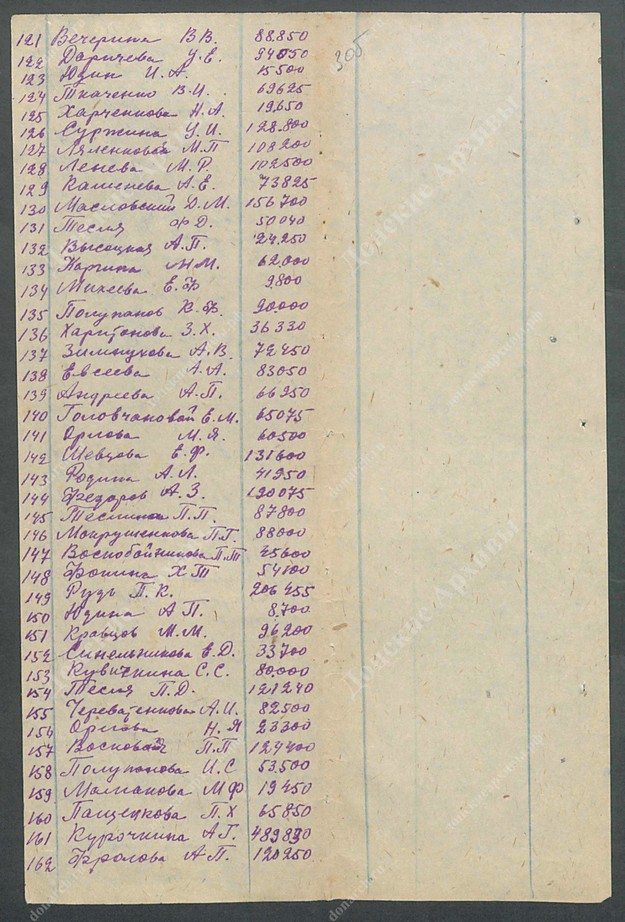 305
121 Вечерина В.В. 88.850
122 Даричева У.Е. 94050
123 Юдин И.А. 15500
124 Ткаченко В.И. 69625
125 Харченкова Н.А. 19.650
126 Суржина У.И. 128.800
127 Ляленкова М.П 108200
128 Ленева М.Р. 102500
129 Каменева А.Е. 73825
130 Масловский Д.М. 156700
131 Тесля Ф.Д. 50040
132 Высоцкая А.П. 24.250
133 Каргина М.М. 62.000
134 Михеева Е.Ф 9.800
135 Полупанов К.Ф. 90.000
136 Харитонова З.Х. 36330
137 Зимнухова А.В. 72450
138 Евсеева А.А. 83050
139 Андреева А.П. 66250
140 Головчановой Е.М. 65075
141 Орлова М.Я. 60500
142 Шевцова Е.Ф. 131600
143 Родина А.Л. 41950
144 Федоров А.З. 120075
145 П.П. 87800
146 Мокрушенкова П.Г. 88000
147 Воскобойникова П.Т 45600
148 Фонина Х Т 54100
149 Рудь П.К. 206455
150 Юдина А П. 8.700
151 Кравцов М.М. 96200
152 Синельникова Е.Д. 33700
153 Кувичкина С.С. 80.000
154 Тесля П.Д. 121240
155 Череватенкова А.И. 82500
156 Орлова Н.Я 23300
157 П.П 124400
158 Полупанова И.С 53.500
159 М.Ф 19450
160 Пащенкова П.Х 65850
161 Курочкина А.Г. 489890
162 Фролова А.П. 120250
Донские Архивы